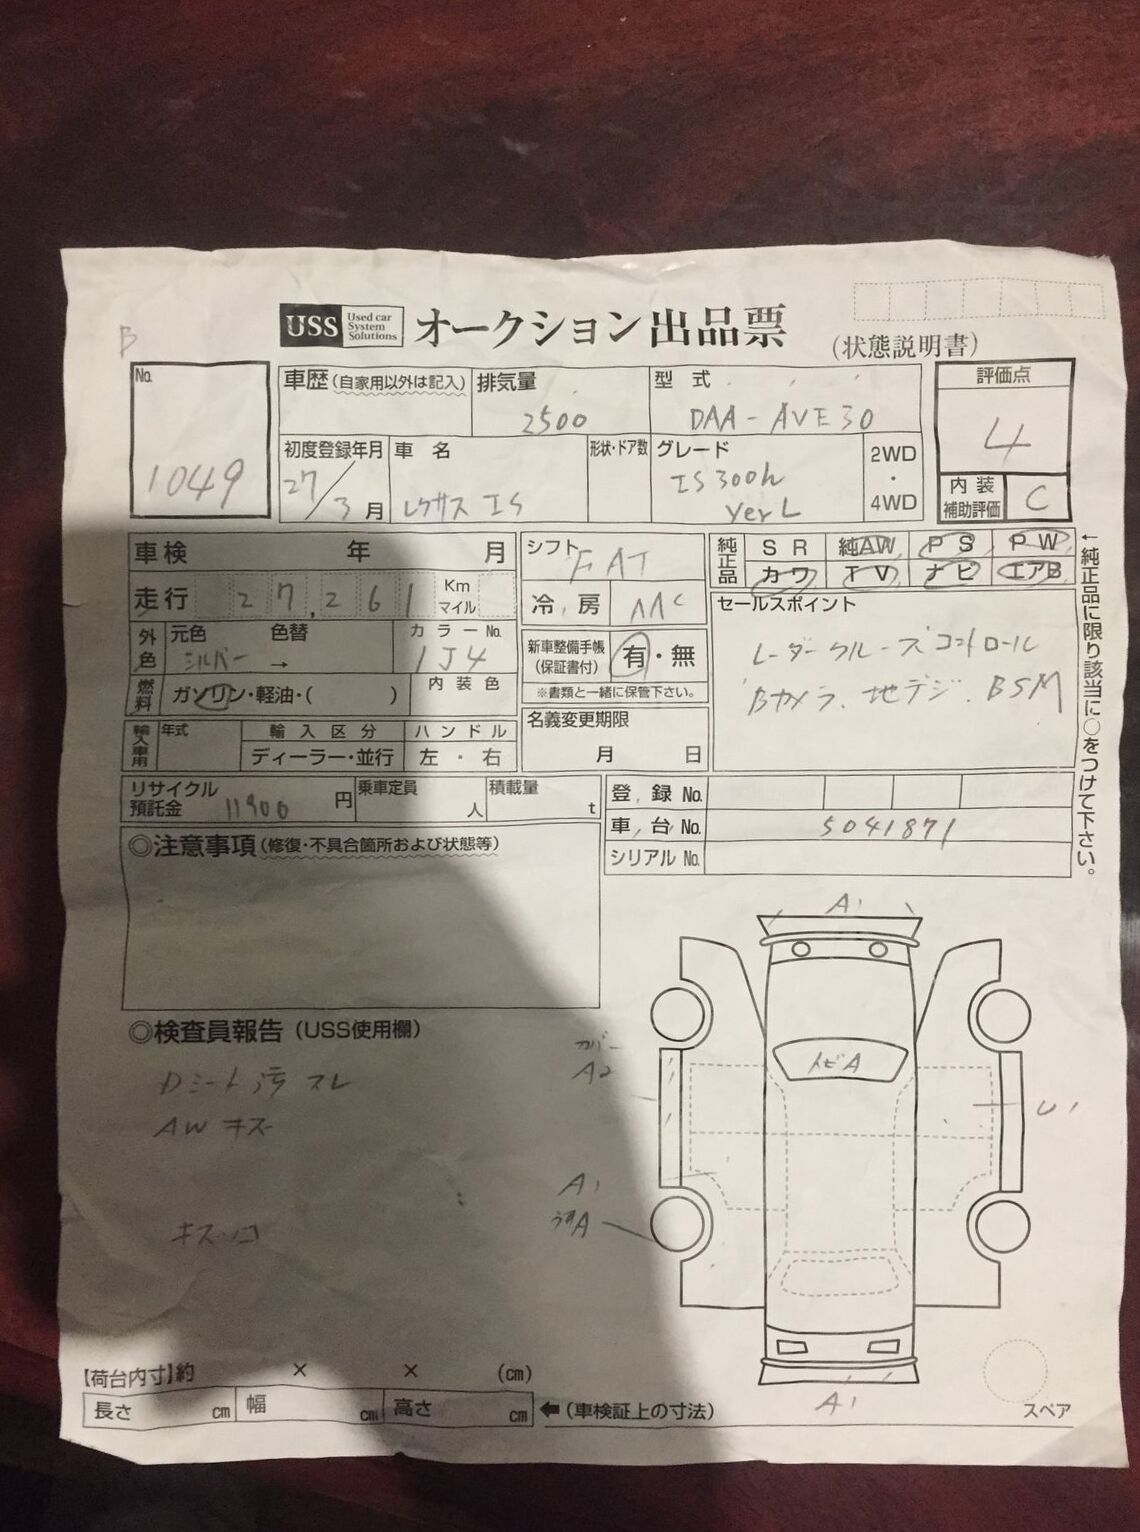 B
USS Used car System Solutions オークション出品票 (状態説明書)
No. 1049
車歴(自家用以外は記入)
排気量 2500
型式 DAA-AVE30
評価点 4
初度登録年月 27/3月
車名 レクサス IS
形状・ドア数
グレード IS300h verL
2WD・4WD
内装補助評価 C
車検 年 月
シフト FAT
純正品 SR 純AW PS PW
カワ TV ナビ エアB
走行 27,261 Km マイル
冷,房 AAC
セールスポイント
レーダークルーズコントロール
Bカメラ、地デジ、BSM
外色 元色 シルバー → 色替 カラーNo. 1J4
新車整備手帳(保証書付) 有・無
※書類と一緒に保管下さい。
燃料 ガソリン・軽油・( )
内装色
名義変更期限 月 日
輸入車用 年式 輸入区分 ディーラー・並行 ハンドル 左・右
↑純正品に限り該当に○をつけて下さい。
リサイクル預託金 11900円
乗車定員 人
積載量 t
登,録No.
車,台No. 5041871
シリアルNo.
◎注意事項(修復・不具合箇所および状態等)
A1
◎検査員報告(USS使用欄)
Dシート汚 スレ
AWキズ
カバー
A2
トビA
U1
A1
うすA
キズ・凹
【荷台内寸】約 × × (cm)
長さ cm 幅 cm 高さ cm ←(車検証上の寸法)
A1
スペア